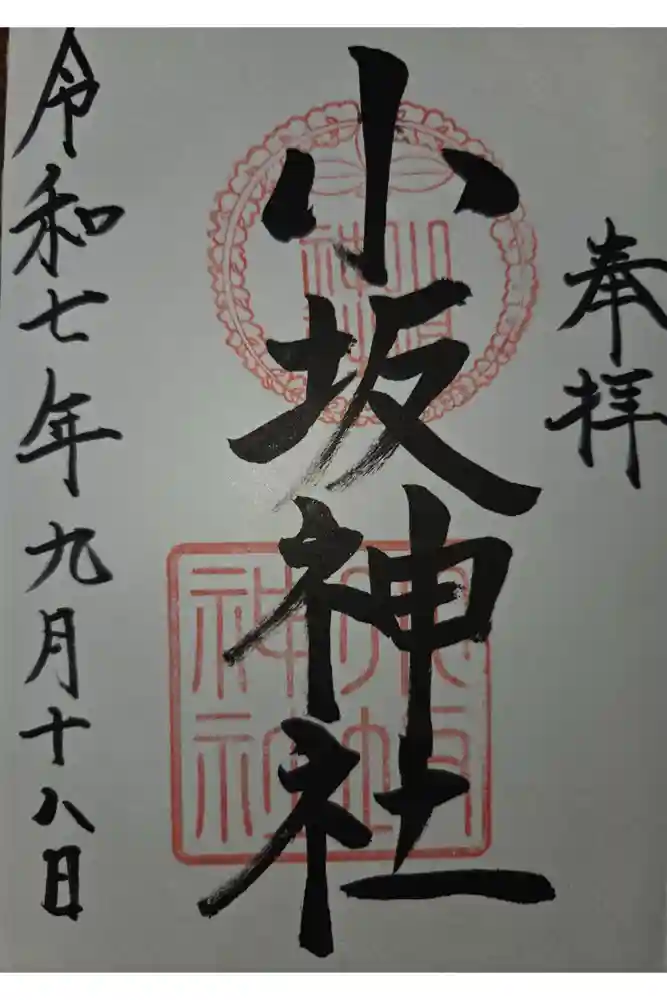 奉拝
小坂神社
令和七年九月十八日